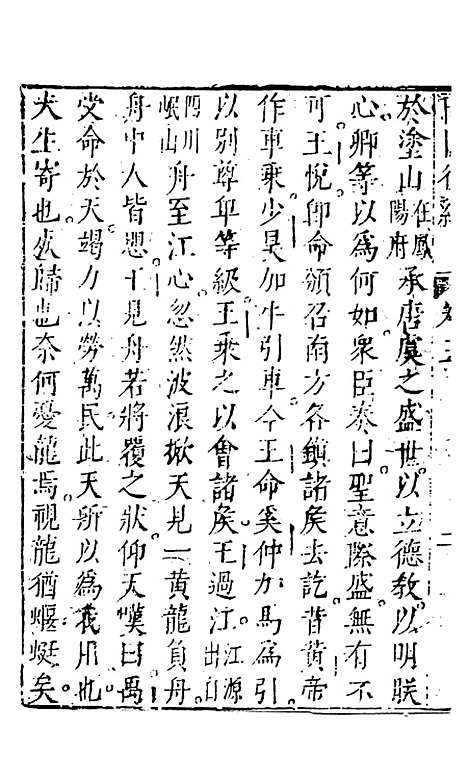 於塗山在鳳陽府承唐虞之盛世以立德教以明朕
心卿等以爲何如衆臣奏曰聖意際盛無有不
可王悅卽命頒召南方各鎮諸侯去訖昔黄帝
作車乘少昊加牛引車今王命奚仲加馬爲引
以別尊卑等級王乘之以會諸侯王過江江源出自
四川岷山舟至江心忽然波浪掀天見一黄龍負舟
舟中人皆恐十見舟若將覆之狀仰天嘆曰禹
受命於天竭力以勞萬民此天所以爲我用也
夫生寄也死歸也奈何憂龍焉視龍猶蝘蜓矣